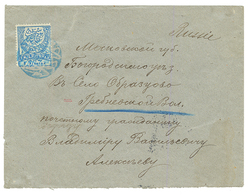 Russie
Московской губ.
Богородскаго уѣз.
Въ Село Образцово
Гребневской Вол.
почетному гражданину
Владиміру Васильевичу
Алексѣеву